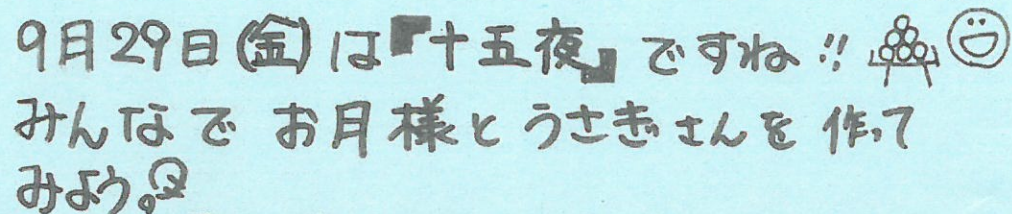 9月29日(金)は『十五夜』ですね!!
みんなで お月様とうさぎさんを 作って
みよう。